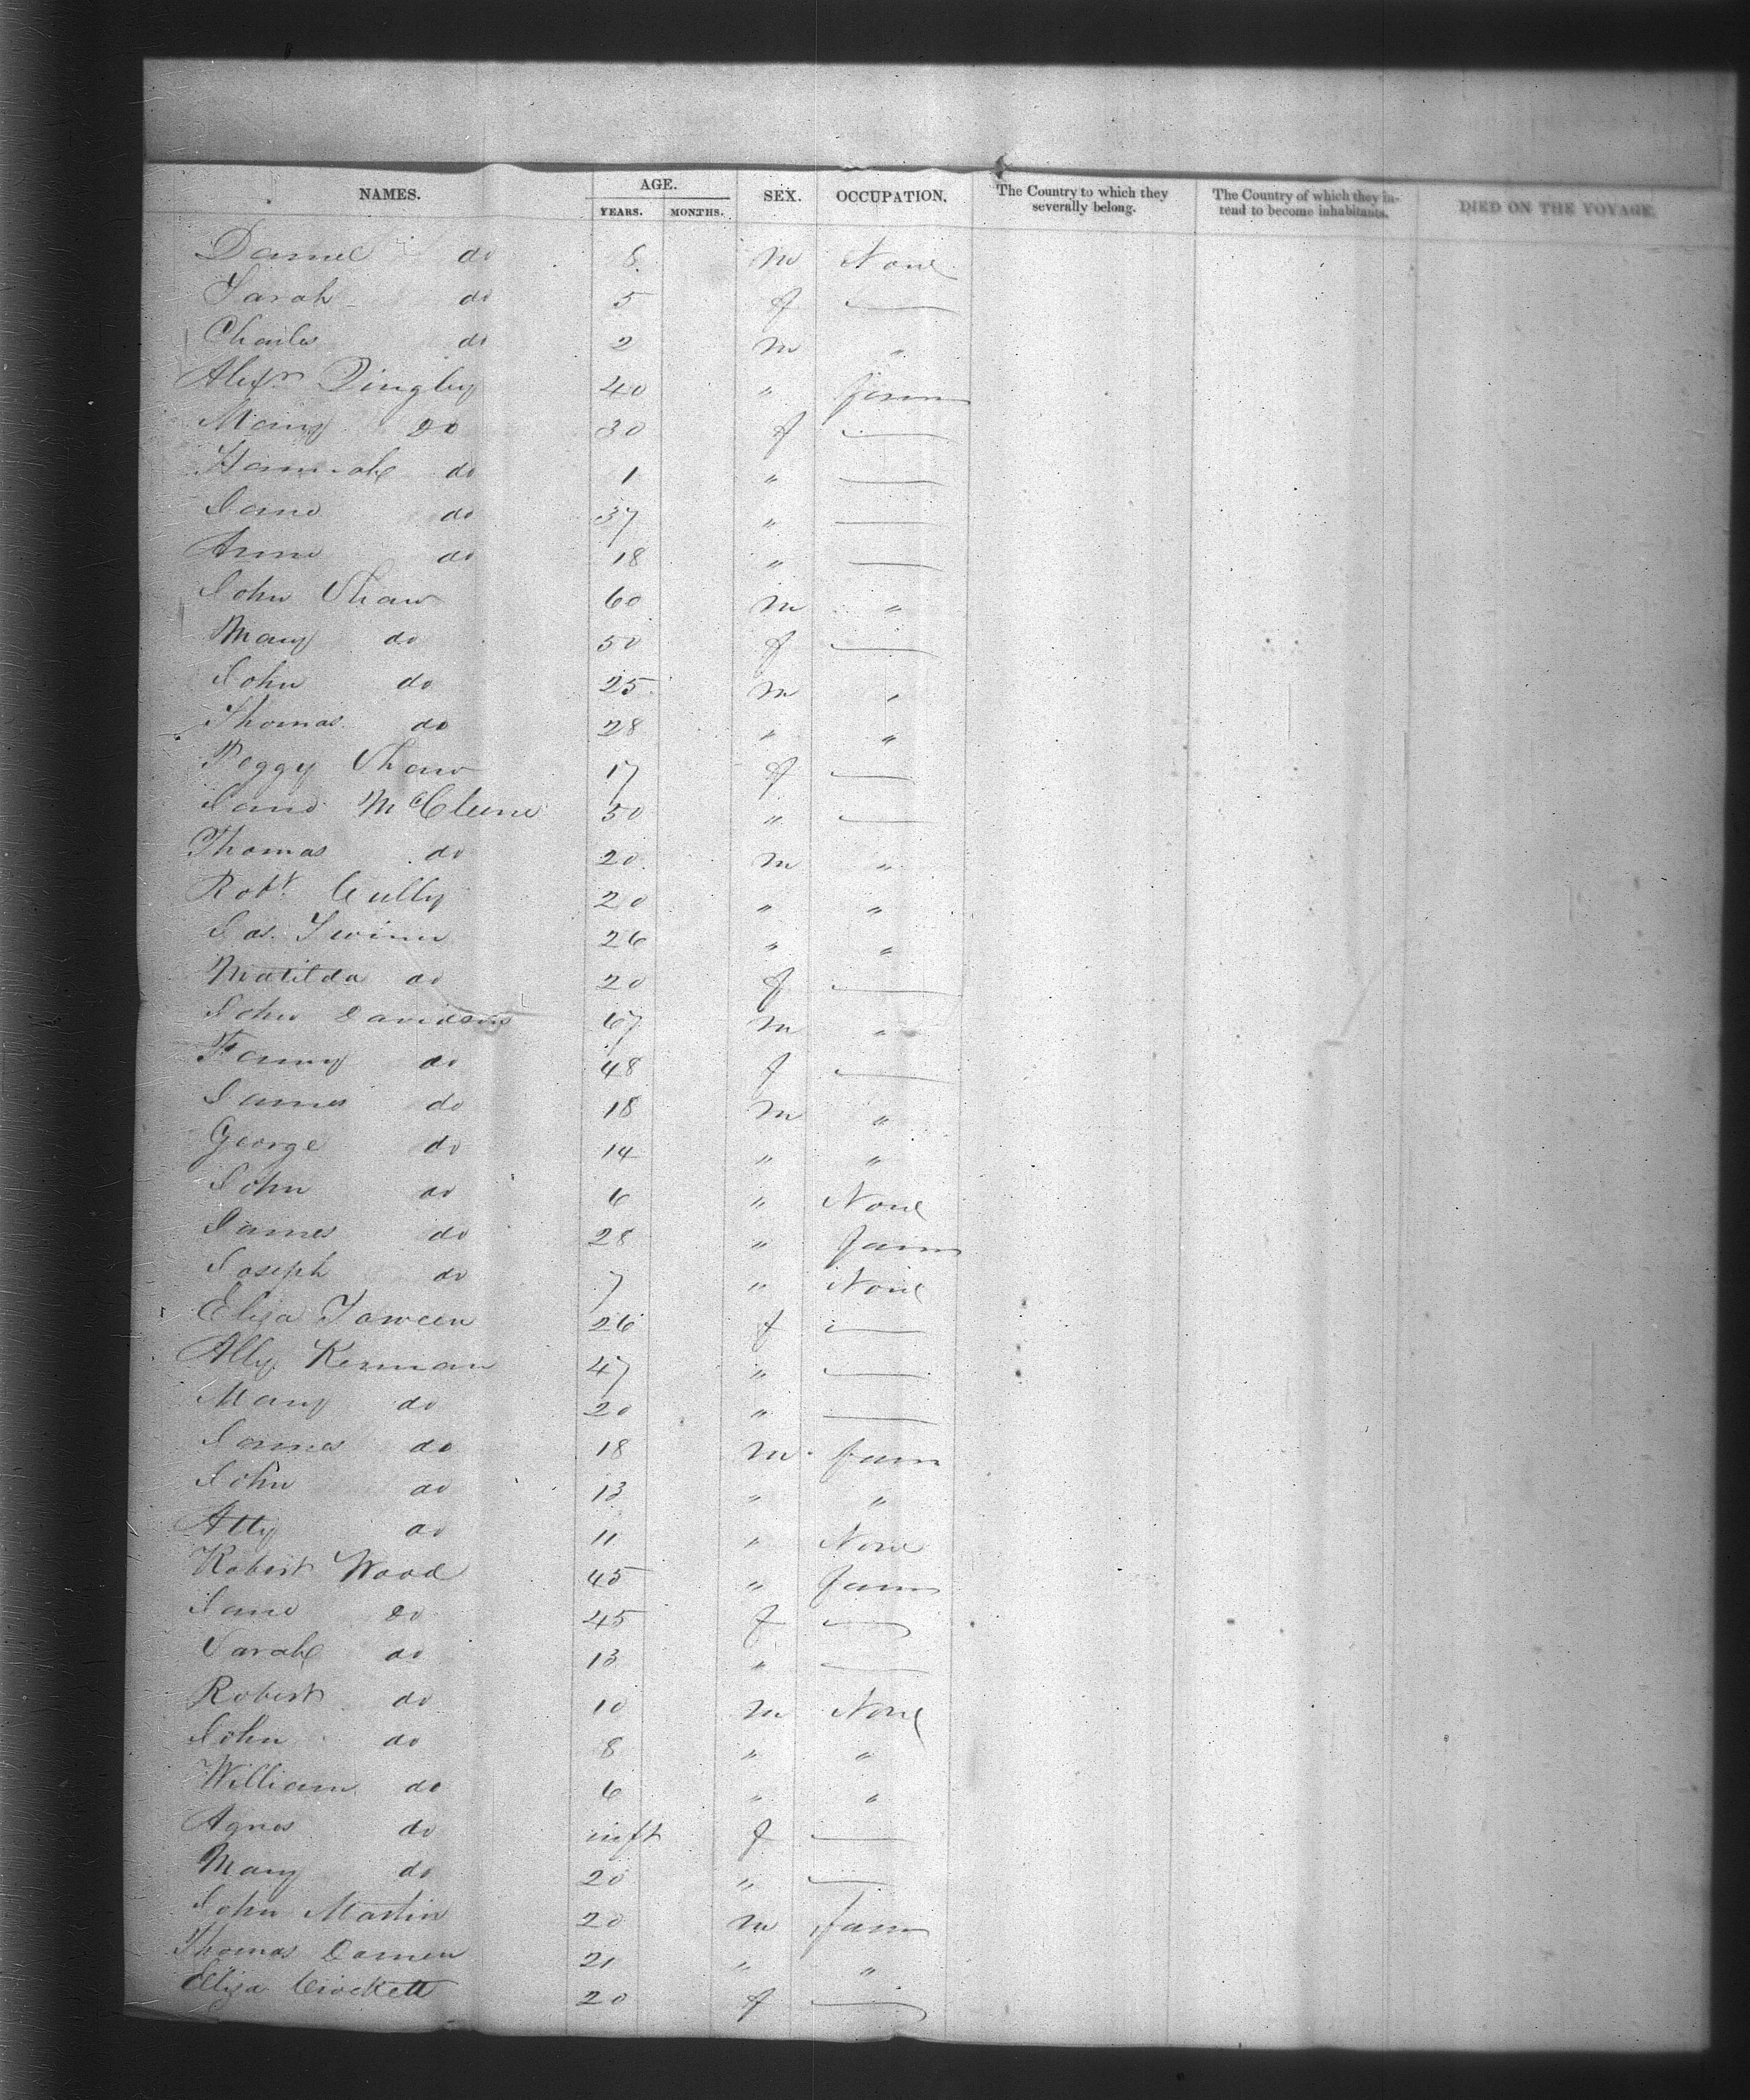 NAMES. AGE. YEARS. MONTHS. SEX. OCCUPATION. The Country to which they severally belong. The Country of which they intend to become inhabitants. DIED ON THE VOYAGE.
Daniel do 8 m None
Sarah do 5 f —
Charles do 2 m "
Alexr Dingby 40 " farm
Mary Do 30 f —
Hannah do 1 " —
Jane do 37 " —
Anne do 18 " —
John Shaw 60 m "
Mary do 50 f —
John do 25 m "
Thomas do 28 " "
Peggy Shaw 17 f —
Jane McClune 50 " —
Thomas do 20 m "
Robt Cully 20 " "
Jas. 26 " "
Matilda do 20 f —
John Davidson 67 m "
Fanny do 48 f —
James do 18 m "
George do 14 " "
John do 6 " None
James do 28 " farm
Joseph do 7 " None
Eliza 26 f —
Ally Kennan 47 " —
Mary do 20 " —
James do 18 m farm
John do 13 " "
Ally do 11 " None
Robert Wood 45 " farm
Jane Do 45 f —
Sarah do 13 " —
Robert do 10 m None
John do 8 " "
William do 6 " "
Agnes do inft f —
Mary do 20 " —
John Martin 20 m farm
Thomas 21 " "
Eliza Crockett 20 f —